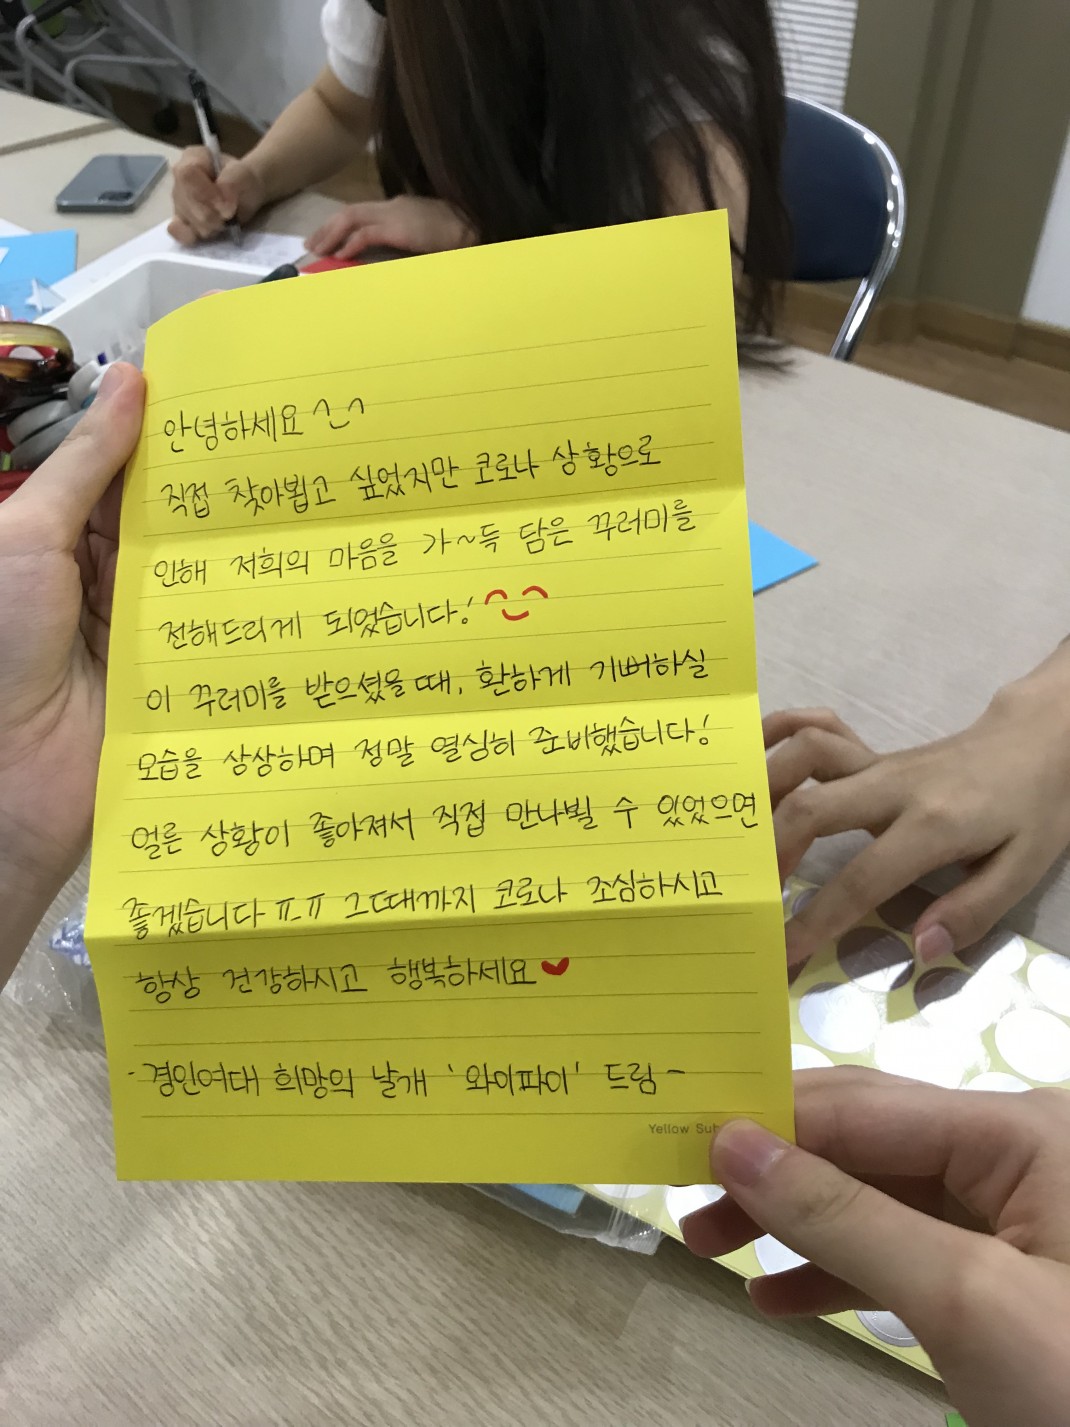 안녕하세요 ^_^
직접 찾아뵙고 싶었지만 코로나 상황으로
인해 저희의 마음을 가~득 담은 꾸러미를
전해드리게 되었습니다!
이 꾸러미를 받으셨을 때, 환하게 기뻐하실
모습을 상상하며 정말 열심히 준비했습니다!
얼른 상황이 좋아져서 직접 만나뵐 수 있었으면
좋겠습니다ㅠ_ㅠ 그때까지 코로나 조심하시고
항상 건강하시고 행복하세요♥
-경인여대 희망의 날개 '와이파이' 드림-
Yellow